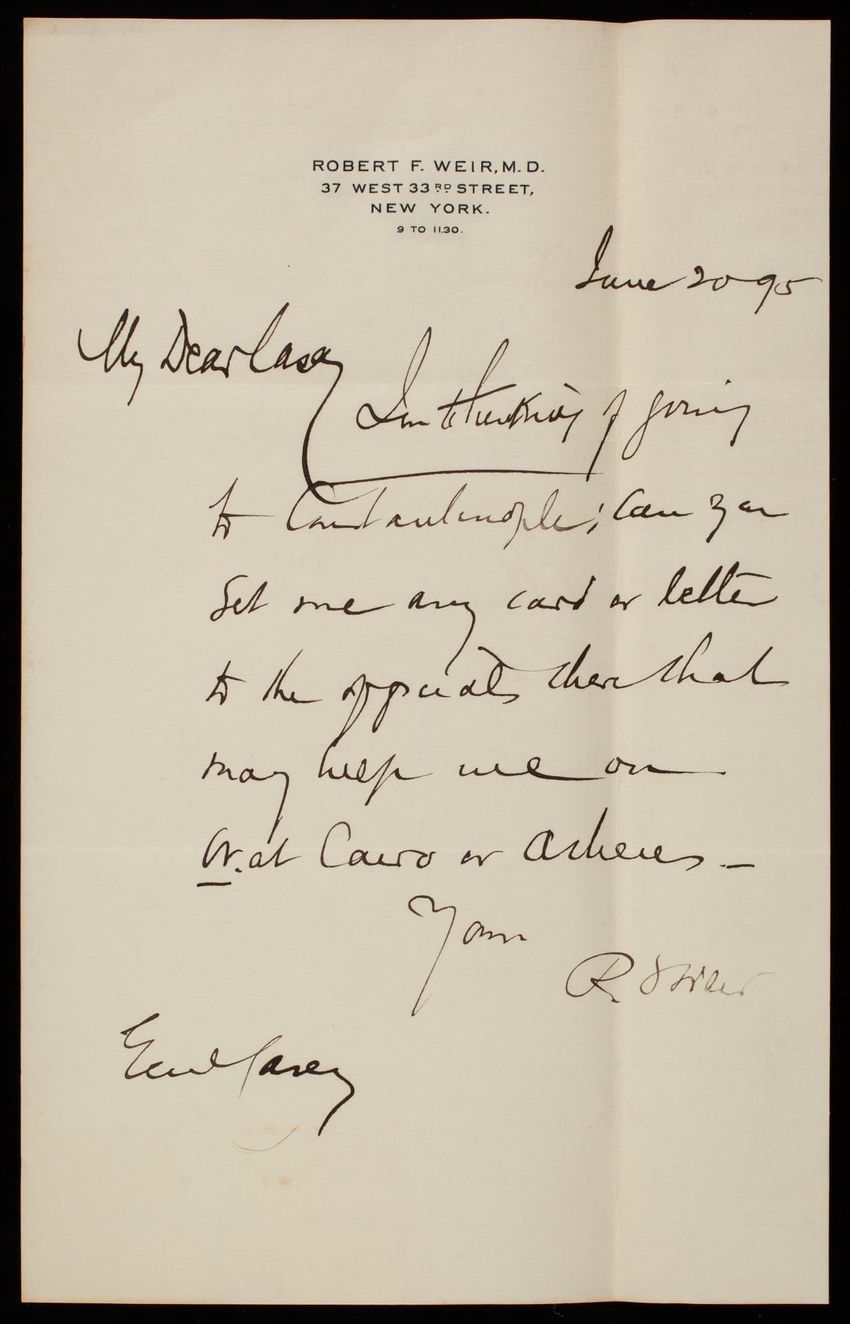 ROBERT F. WEIR, M.D.
37 WEST 33RD STREET,
NEW YORK.
9 TO 11.30.
June 20 95
My Dear Casey
I'm thinking of going
to Constantinople; Can you
get me any card or letter
to the officials there that
may help me on
or. at Cairo or Athens –
Yours
R. F. Weir
Genl Casey